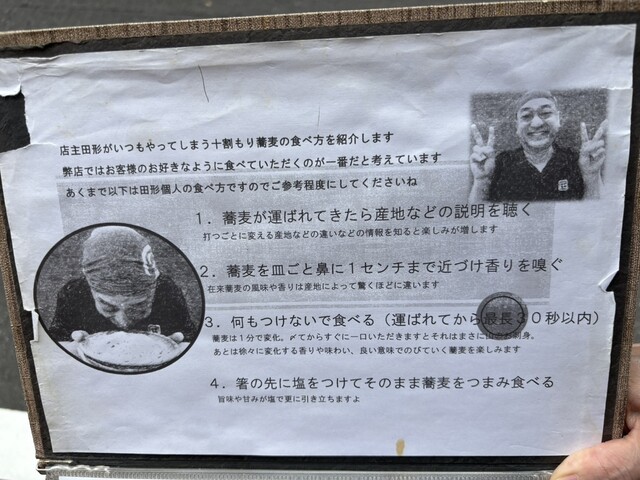 店主田形がいつもやってしまう十割もり蕎麦の食べ方を紹介します
弊店ではお客様のお好きなように食べていただくのが一番だと考えています
あくまで以下は田形個人の食べ方ですのでご参考程度にしてくださいね
1．蕎麦が運ばれてきたら産地などの説明を聴く
打つごとに変える産地などの違いなどの情報を知ると楽しみが増します
2．蕎麦を皿ごと鼻に1センチまで近づけ香りを嗅ぐ
在来蕎麦の風味や香りは産地によって驚くほどに違います
3．何もつけないで食べる（運ばれてから最長30秒以内）
蕎麦は1分で変化。〆てからすぐに一口いただきますとそれはまさに刺身。
あとは徐々に変化する香りや味わい、良い意味でのびていく蕎麦を楽しみます
4．箸の先に塩をつけてそのまま蕎麦をつまみ食べる
旨味や甘みが塩で更に引き立ちますよ